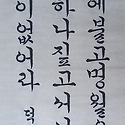 에불고명월은
하나짚고서서
이없어라
덕